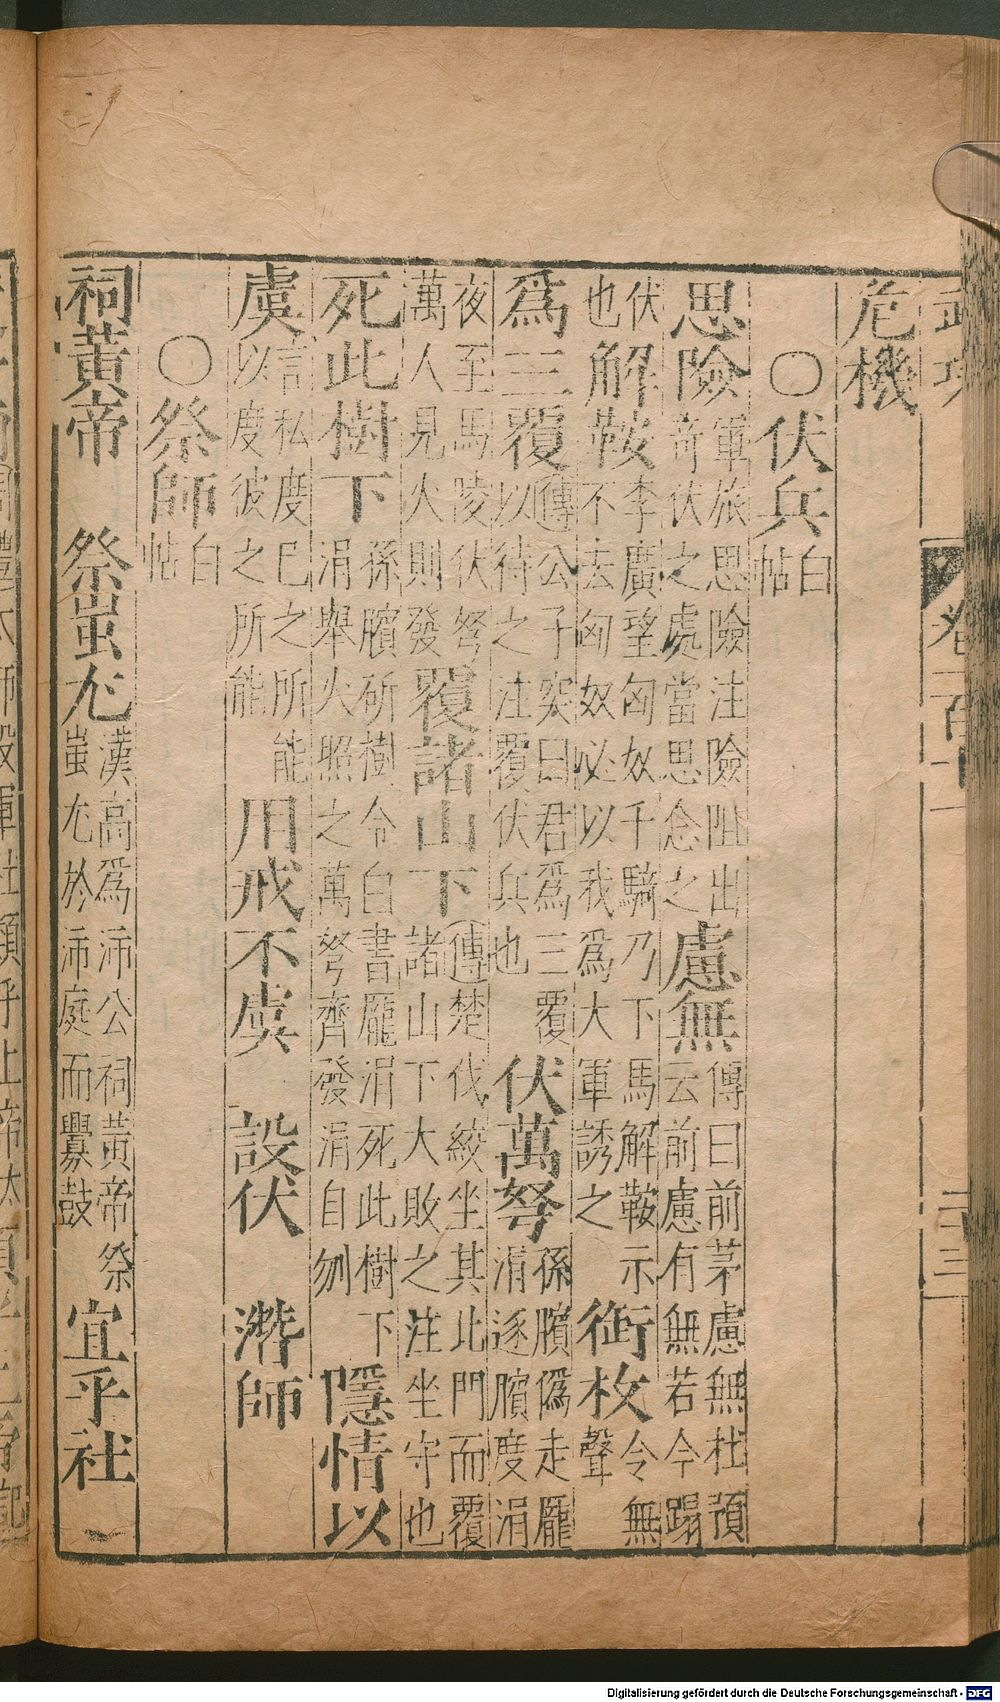 危機
○伏兵 白帖
思險 軍旅思險注險阻出奇伏之處當思念之 慮無 傳曰前茅慮無杜預云前慮有無若今蹋伏
也 解鞍 李廣望匈奴千騎乃下馬解鞍示不去匈奴必以我為大軍誘之 銜枚 令無聲
為三覆 傳公子突曰君為三覆以待之注覆伏兵也 伏萬弩 孫臏偽走龐涓逐臏度涓
夜至馬陵伏弩萬人見火則發 覆諸山下 傳楚伐絞坐其北門而覆諸山下大敗之注坐守也
死此樹下 孫臏斫樹令白書龐涓死此樹下涓舉火照之萬弩齊發涓自刎 隱情以
虞 言私度已之所能以度彼之所能 用戒不虞 設伏 潛師
○祭師 白帖
祠黃帝 祭蚩尤 漢高為沛公祠黃帝祭蚩尤於沛庭而釁鼓 宜乎社
卷二百十一 二十三
Digitalisierung gefördert durch die Deutsche Forschungsgemeinschaft - DFG